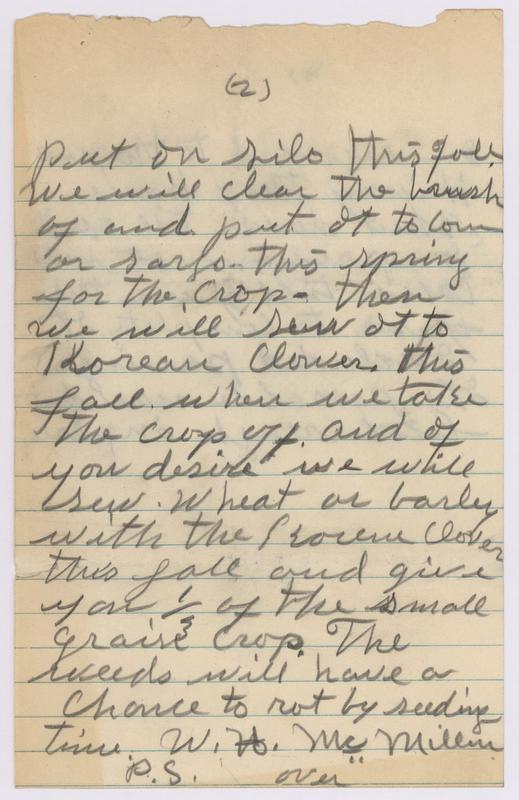 (2)
put on silo this fall
We will clear the brush
of and put it to corn
or sargo this spring
for the crop - then
we will sew it to
Korean Clover. this
fall when we take
the crop off. and if
you desire we will
sew. Wheat or barley
with the Korene Clover
this fall and give
you 1/3 of the small
graise crop. The
weeds will have a
chance to rot by seeding
time. W. H. Mc Millin
P.S. over"